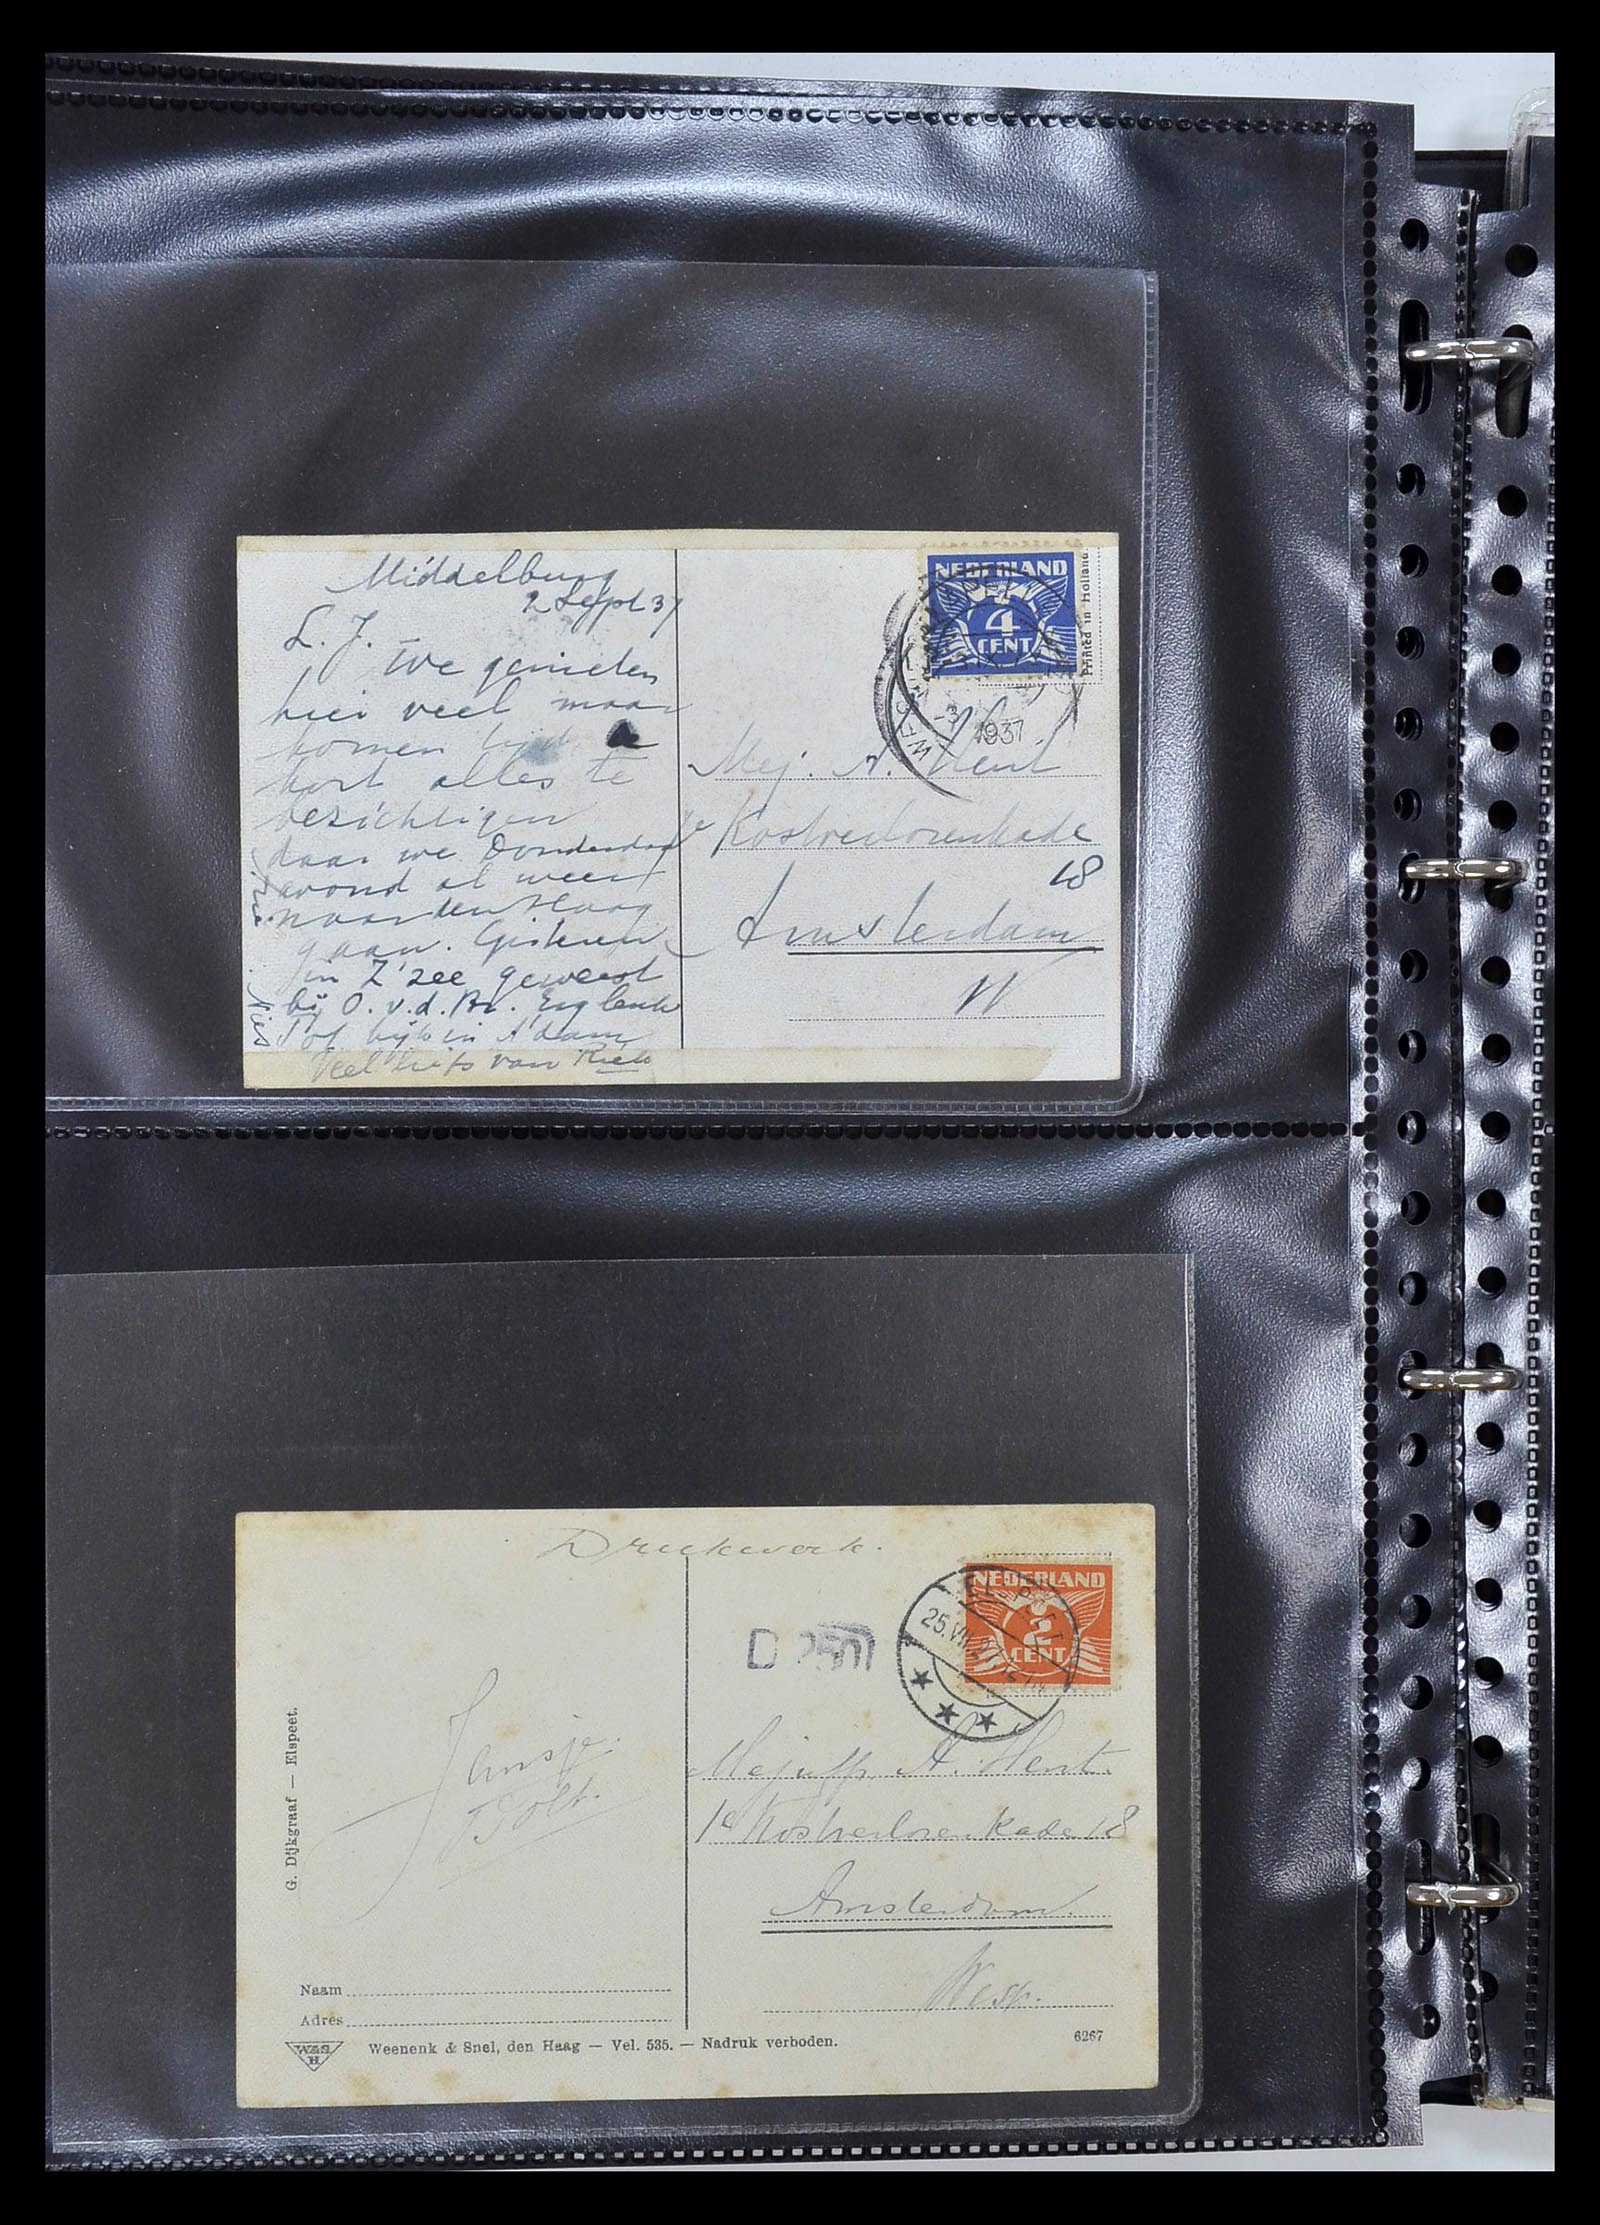 Middelburg
2 Sept 37
L. J.
We genieten
hier veel maar
komen tijd
kort alles te
bezichtigen
daar we Donderdag
avond al weer
naar den Haag
gaan. Gisteren
in Z'zee geweest
bij O. v. d.
in A'dam
Veel liefs van
Nies
NEDERLAND
4
CENT
Printed in Holland
-3
1937
Mej. A. Hent
1e Kostverlorenkade
18
Amsterdam
W
Drukwerk.
NEDERLAND
2
CENT
ELSPEET
25.VII
D
Jansje
Mejuff. A. Hent.
1e Kostverlorenkade 18
Amsterdam.
West.
G. Dijkgraaf — Elspeet.
Naam
Adres
Weenenk & Snel, den Haag — Vel. 535. — Nadruk verboden.
6267